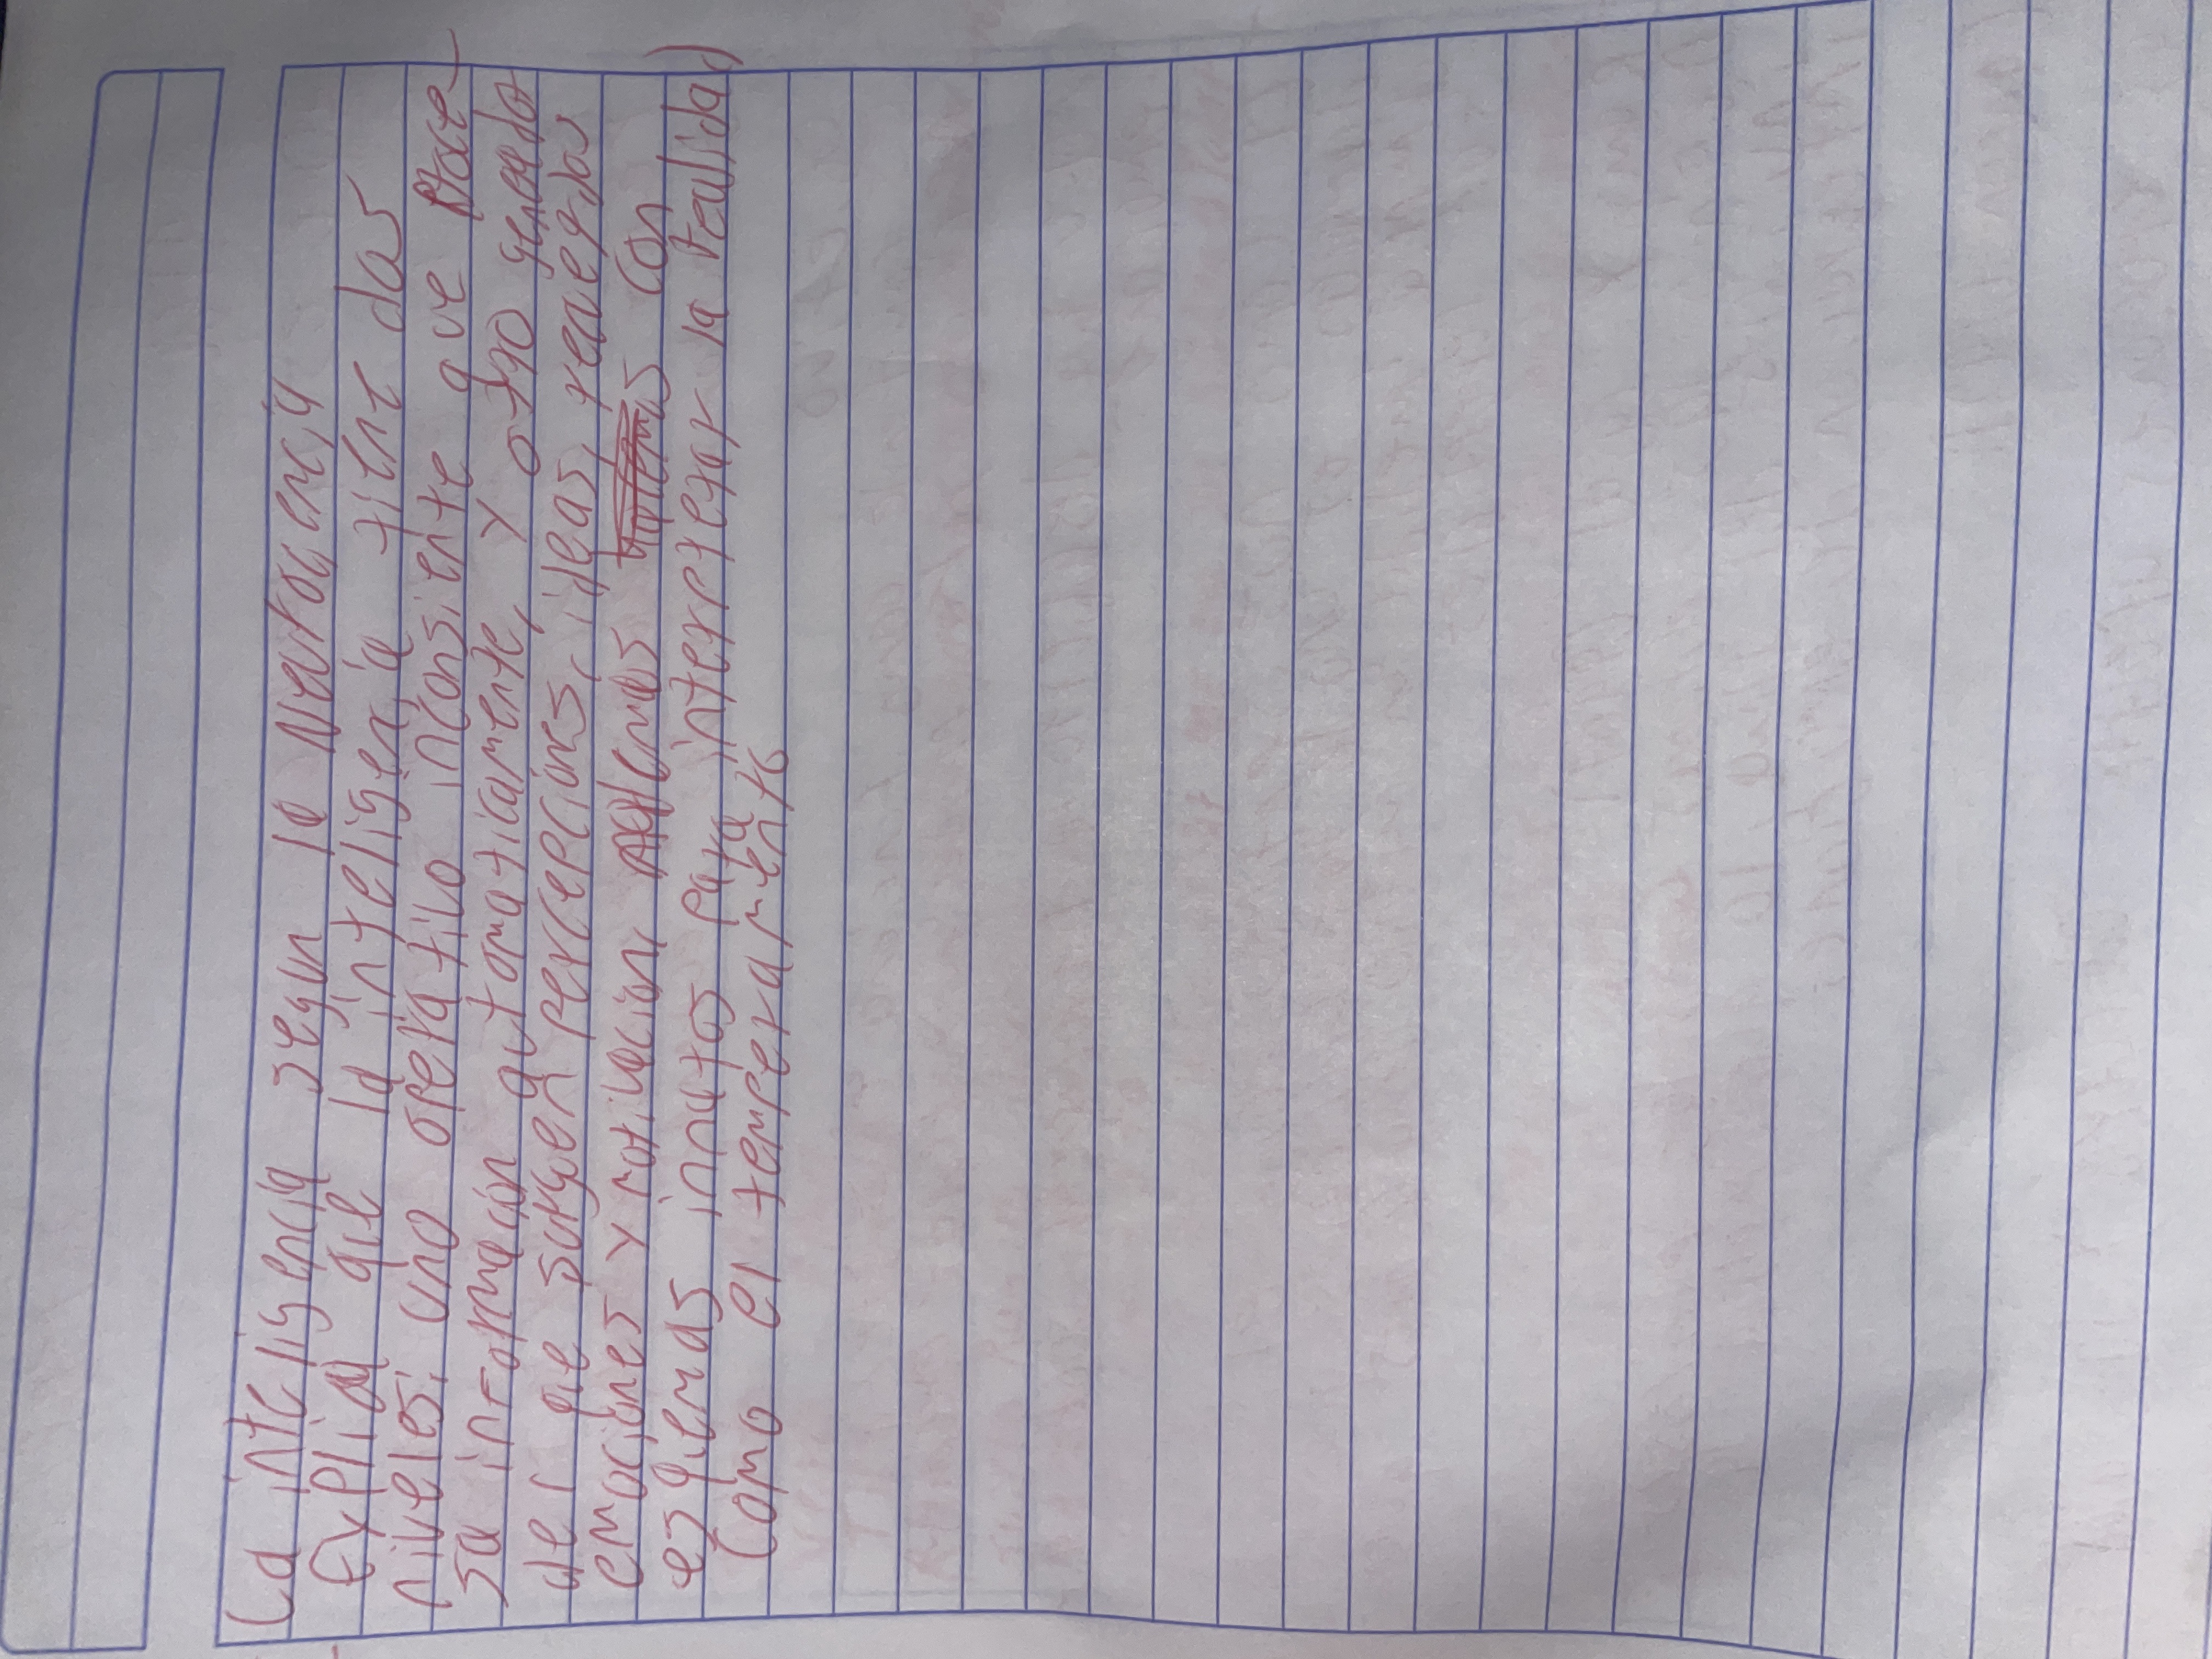 La inteligencia segun la Neurociencia
Explica que la inteligencia tiene dos
niveles: uno operatilo inconsiente que Proce-
sa información automáticamente, y otro generador
del que surgen percepciones, ideas, recuerdos
emociones y motivacion. Nacemos con
esquemas innatos para interpretar la realidad
Como el temperamento